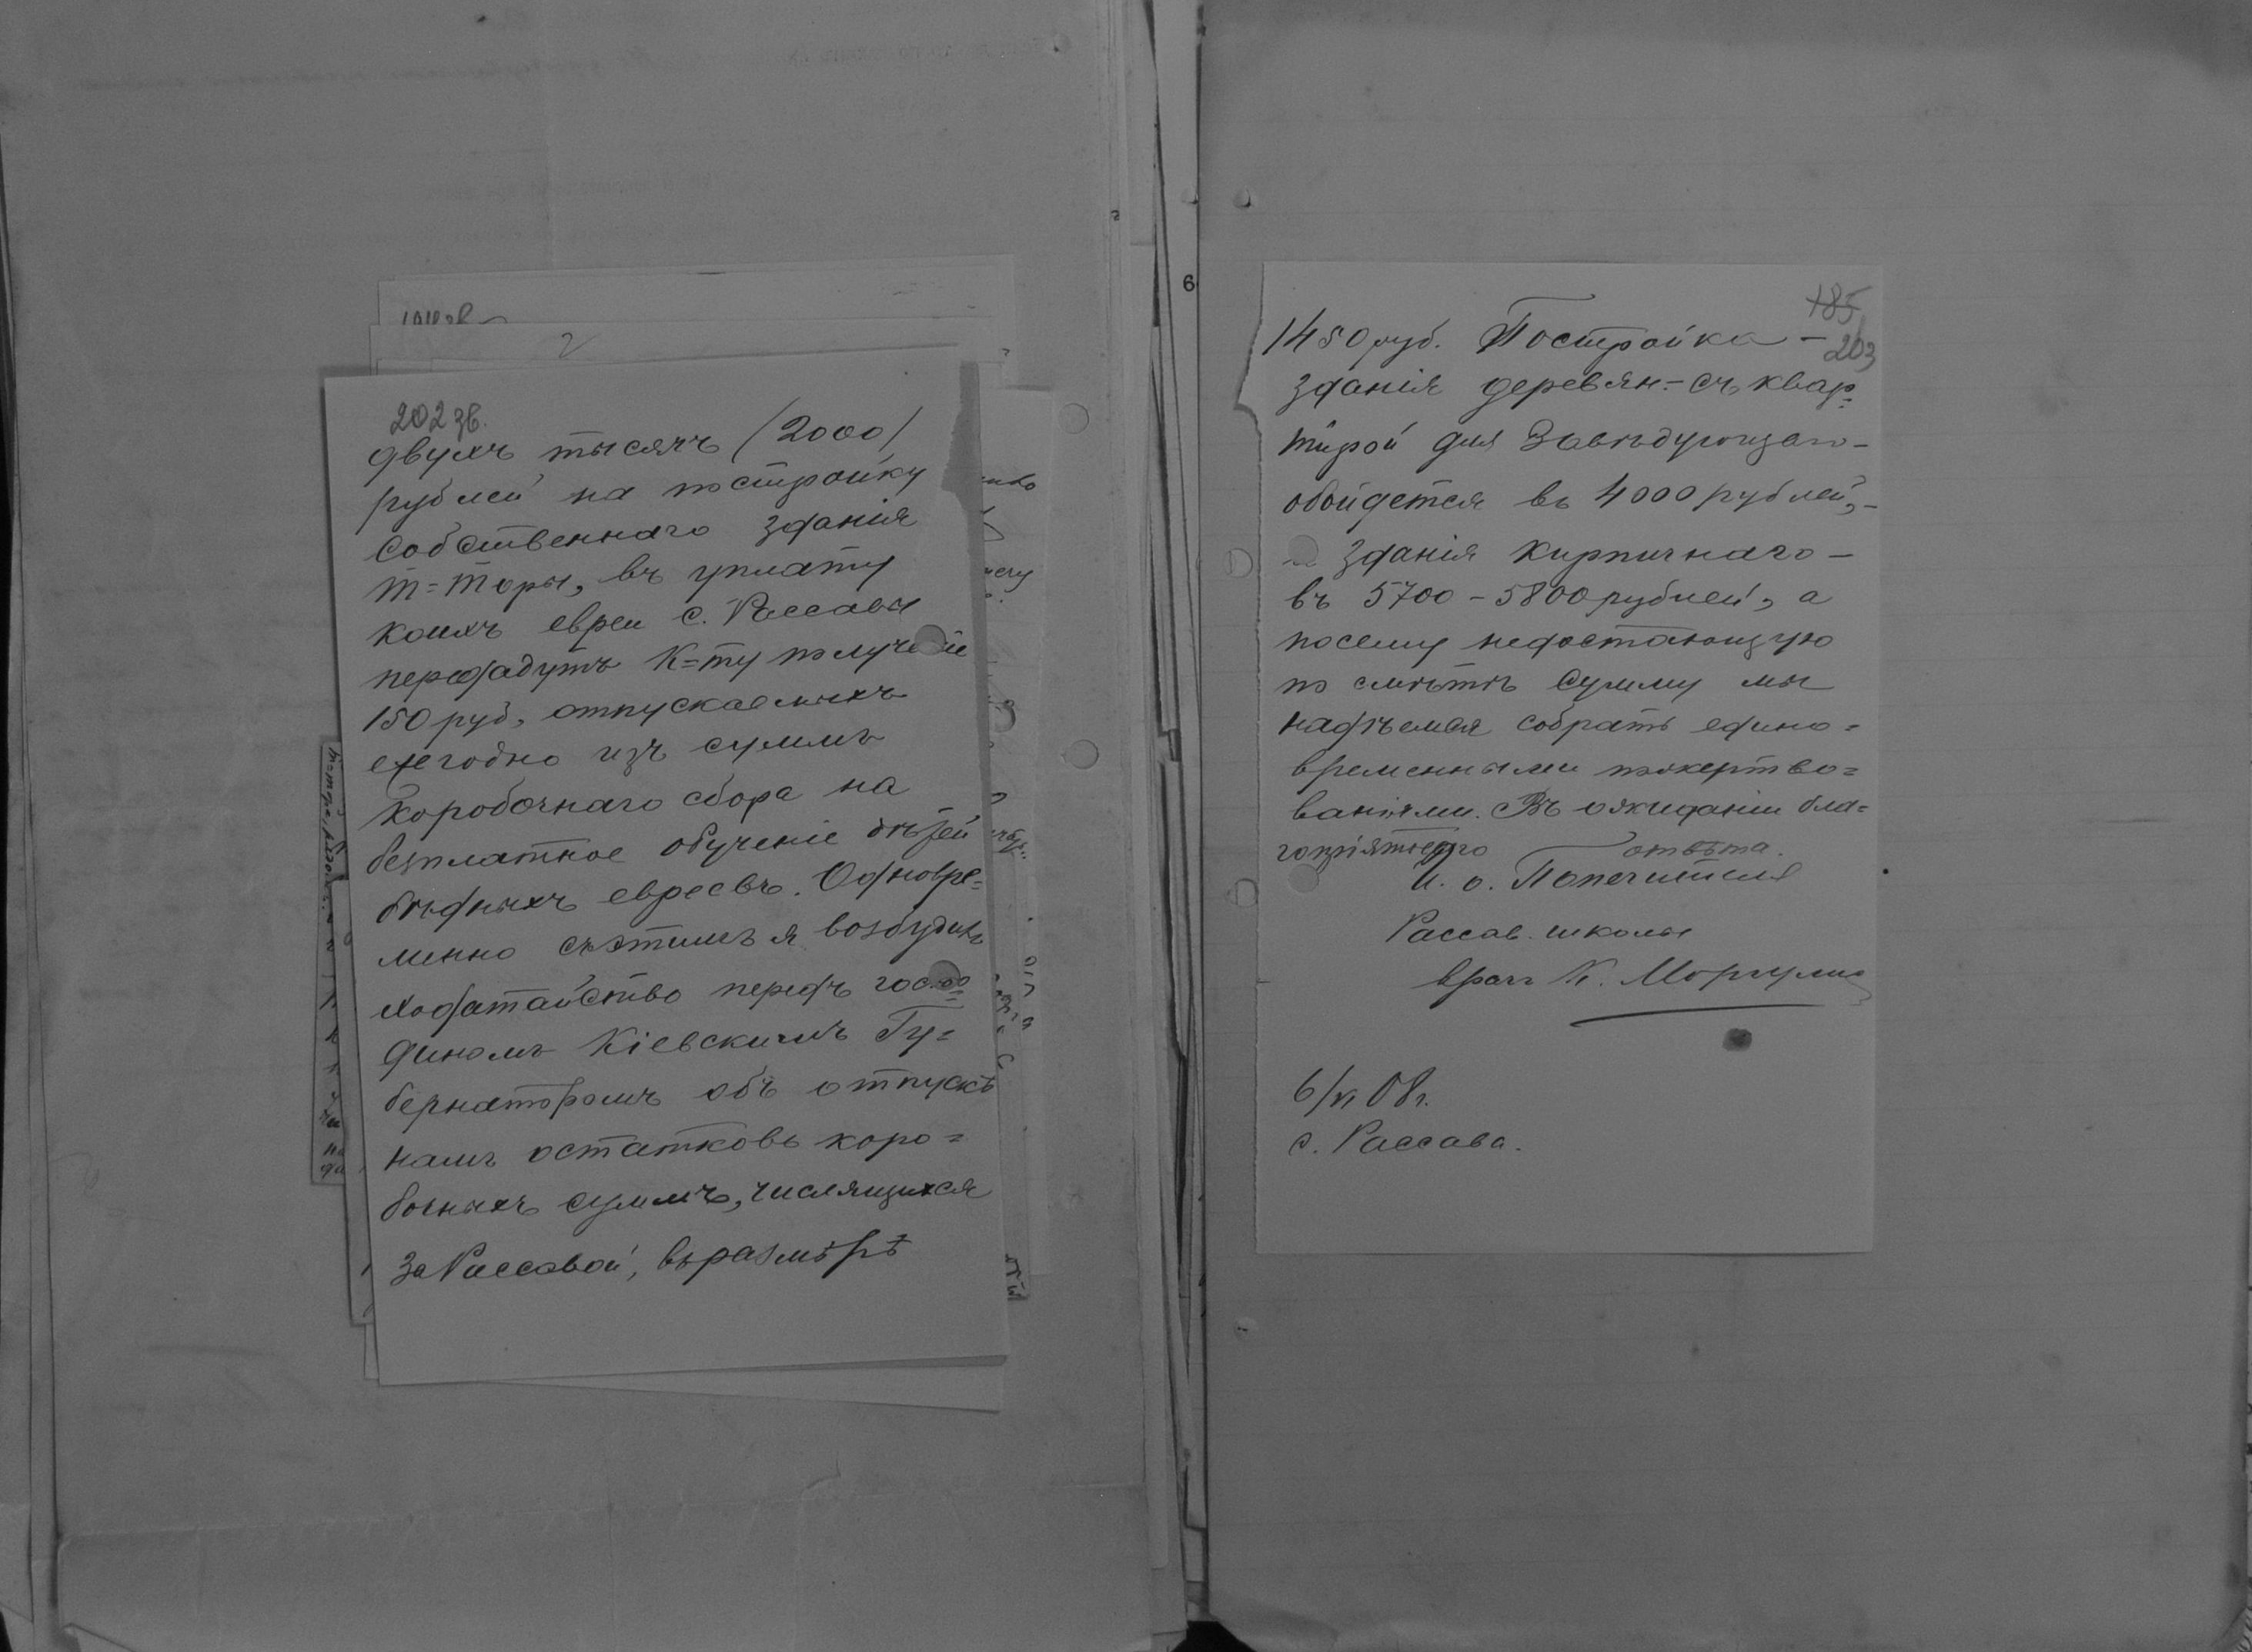 202 зв.
двухъ тысячъ (2000)
рублей на постройку
собственнаго зданія
т=торы, въ уплату
коихъ евреи с. Рассавы
передадутъ К=ту получе
150 руб, отпускаемыхъ
ежегодно изъ суммъ
коробочнаго сбора на
безплатное обученіе дѣтей
бѣдныхъ евреевъ. Одновре=
менно съ этимъ я возбудилъ
ходатайство передъ госпо=
диномъ Кіевскимъ Гу=
бернаторомъ объ отпускѣ
намъ остатковъ коро=
бочныхъ суммъ, числящихся
за Рассавой, въ размѣрѣ
6
185
203
1450 руб. Постройка -
зданія деревян.- съ квар=
тирой для Завѣдующаго -
обойдется въ 4000 рублей, -
зданія кирпичнаго -
въ 5700 - 5800 рублей, а
посему недостающую
по смѣтѣ сумму мы
надѣемся собрать едино=
временными пожертво=
ваніями. Въ ожиданіи бла=
гопріятнаго отвѣта.
И. о. Попечителя
Рассав. школы
врачъ К. Моргулис
6/VI 08 г.
с. Рассава.